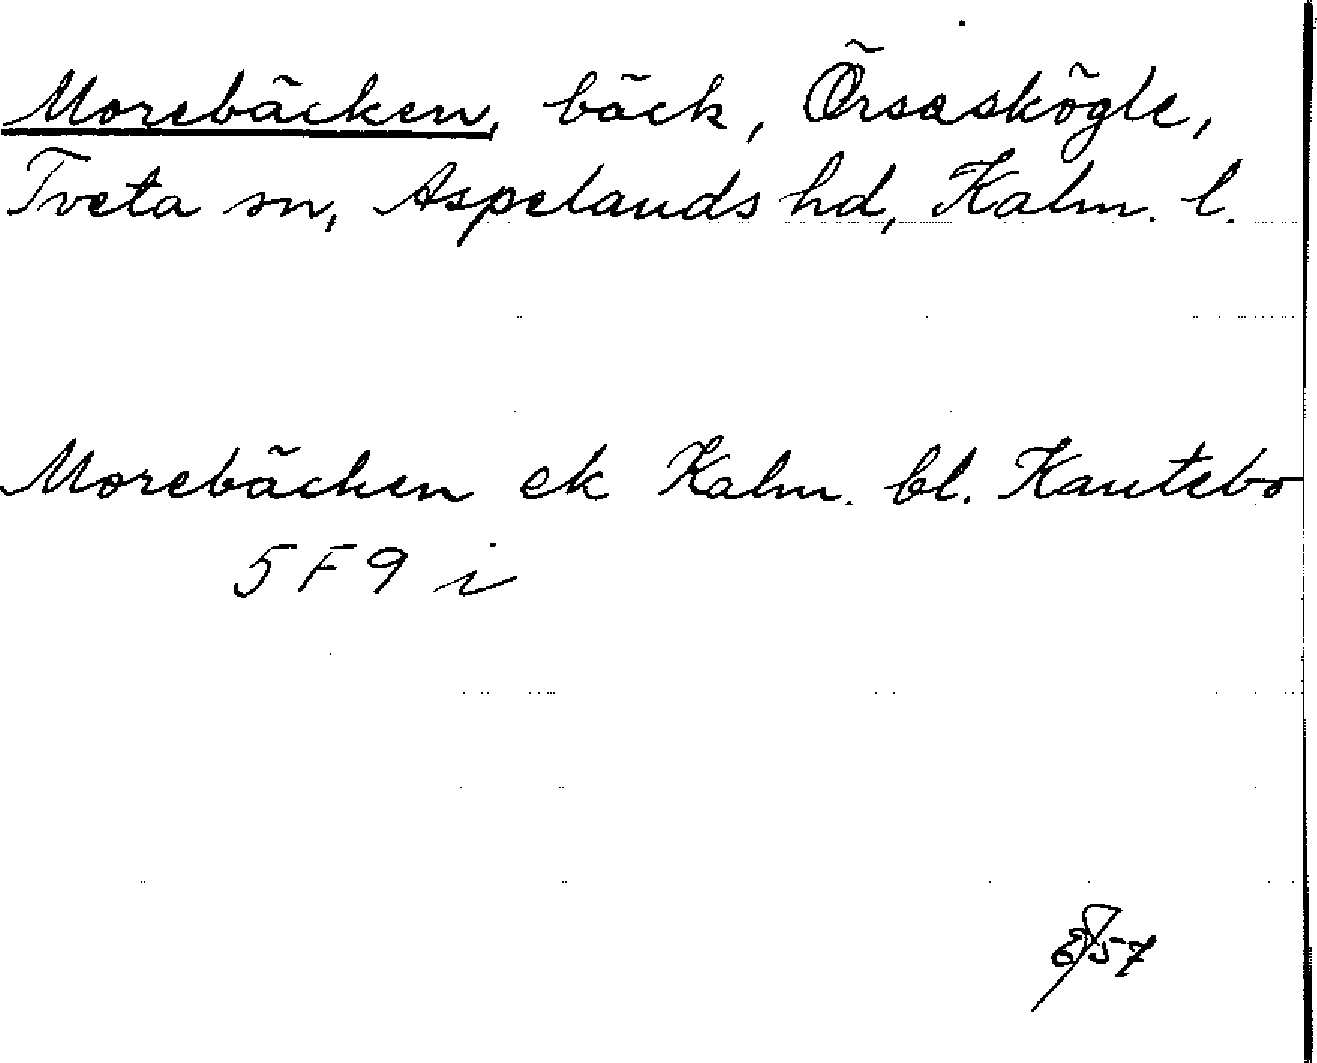 Morebäcken, bäck, Örsaskögle,
Tveta sn, Aspelands hd, Kalm. l.
Morebäcken ek Kalm. bl. Kantebo
5 F 9 i